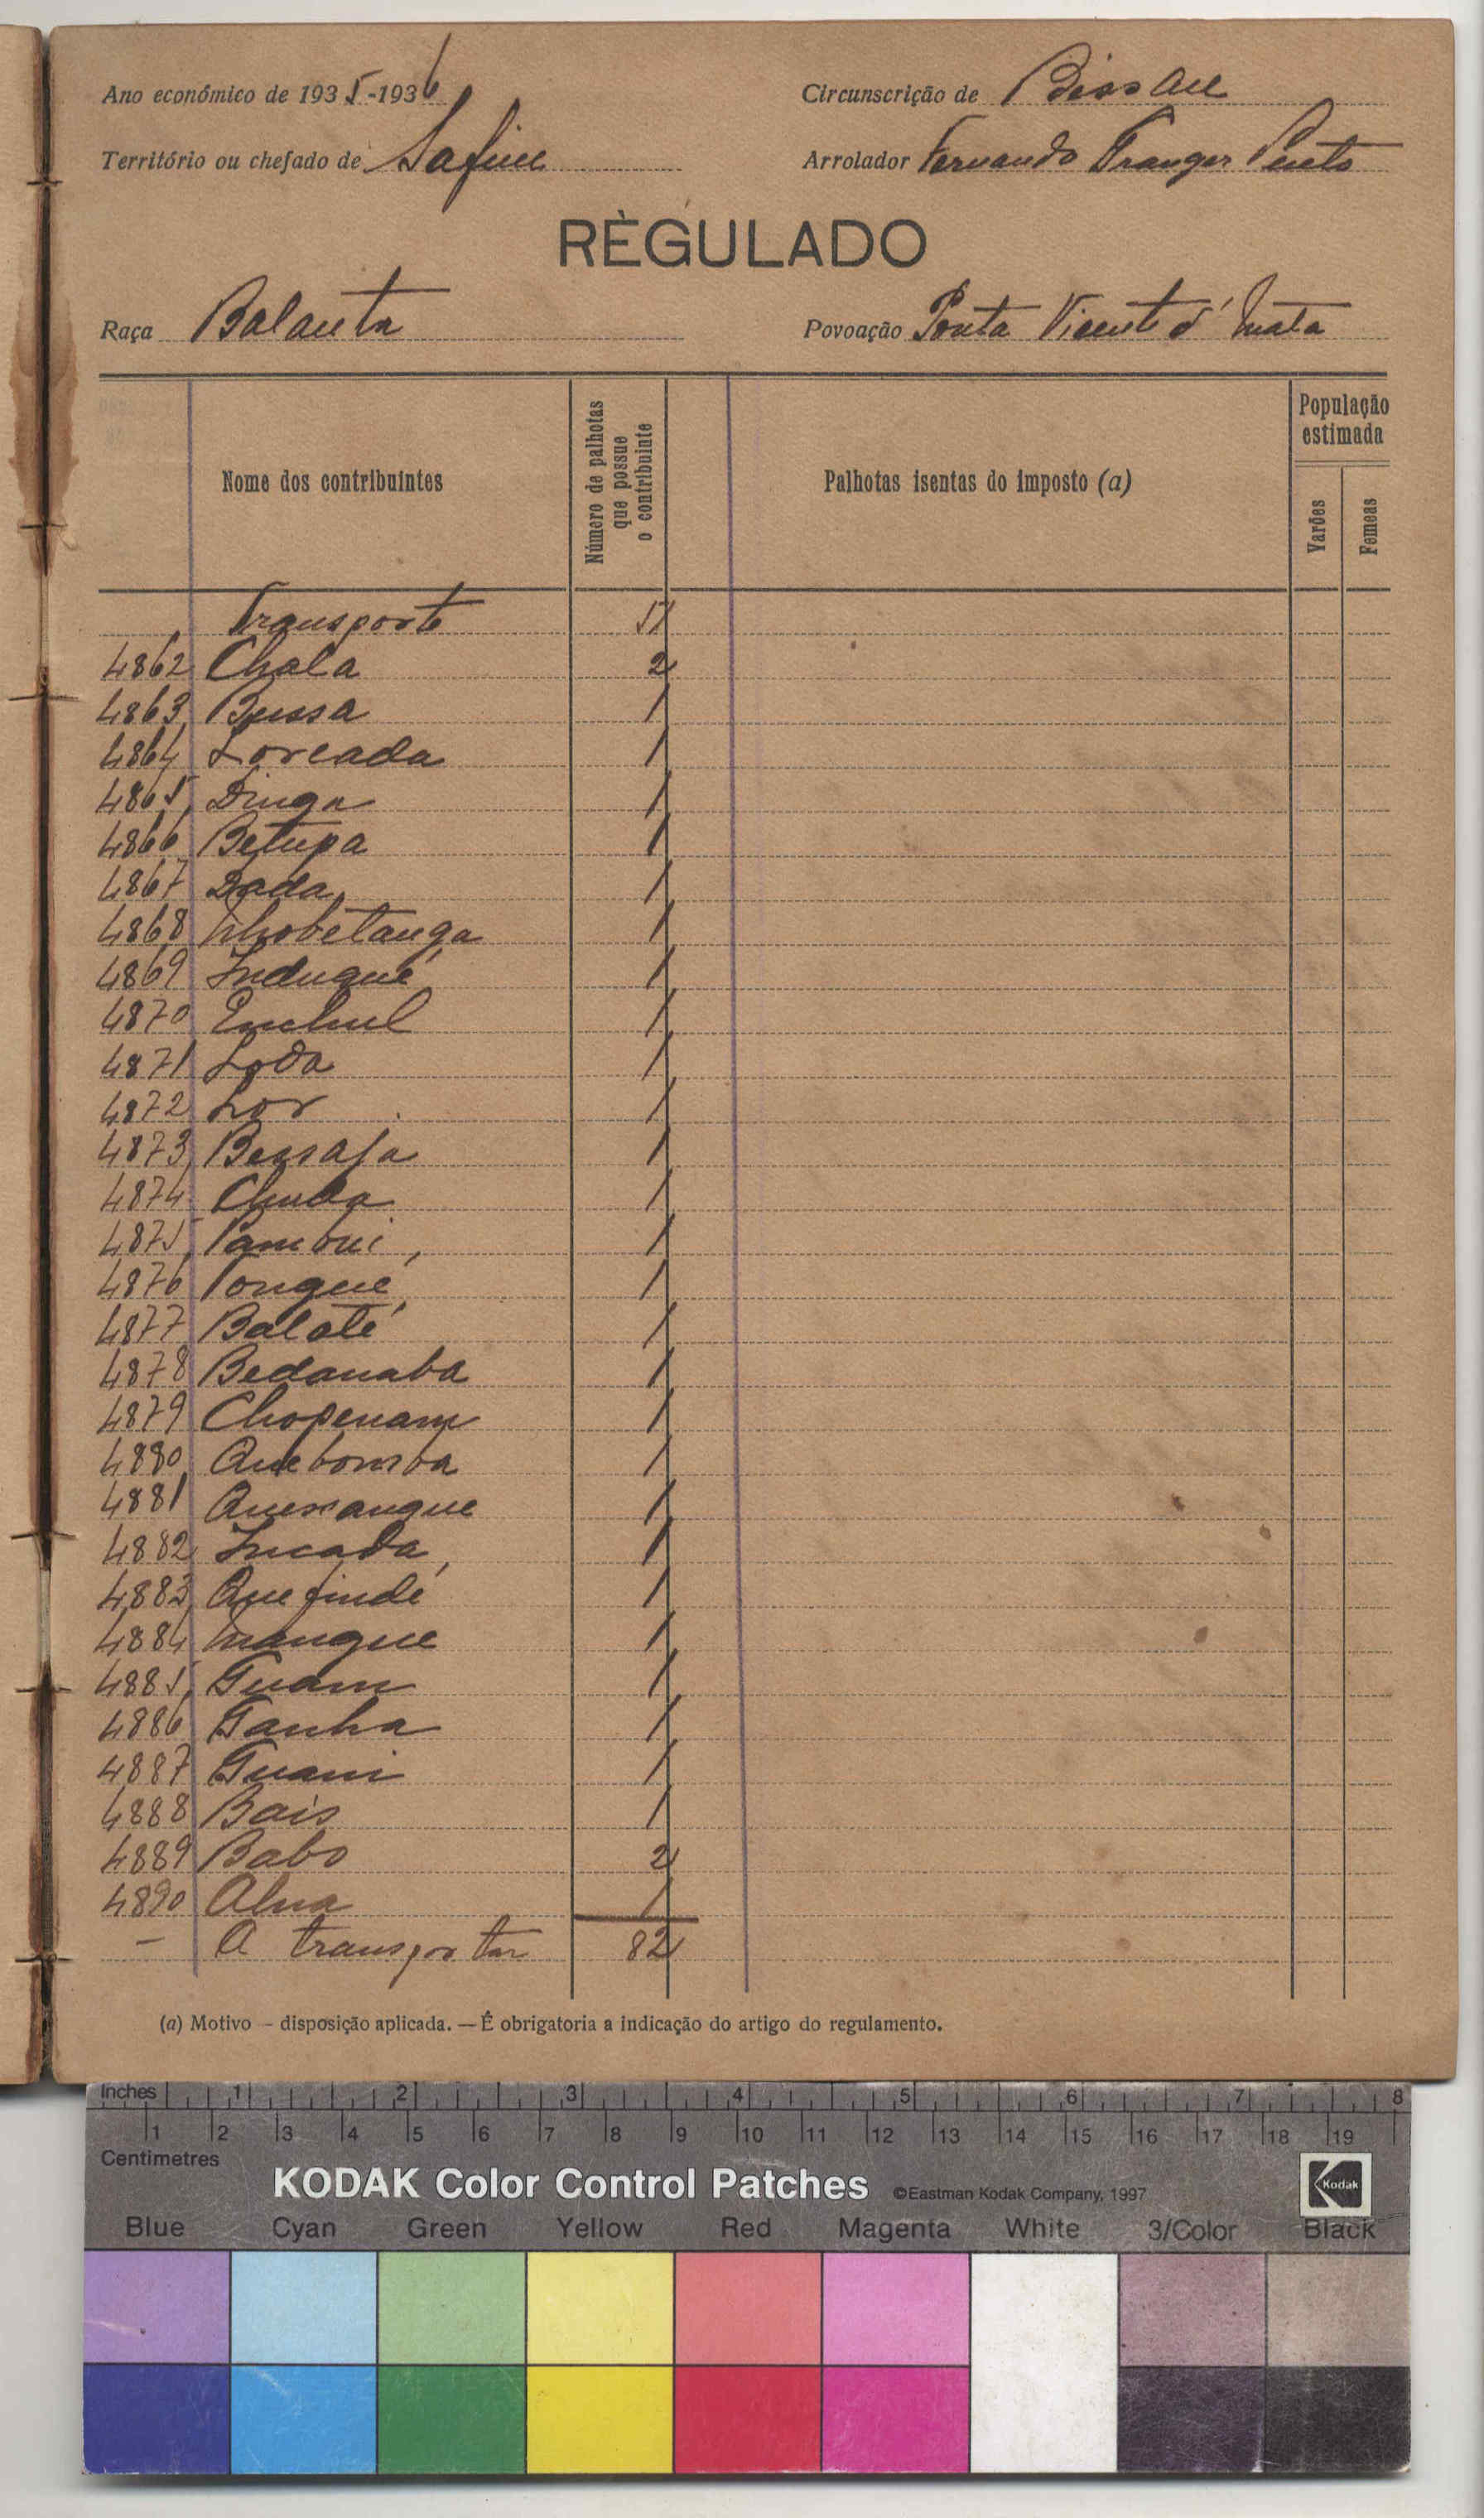 Ano económico de 1935-1936
Circunscrição de Bissau
Território ou chefado de Safim
Arrolador Fernando Pinto
RÈGULADO
Raça Balanta
Povoação Ponta Vicente d' Mata
Nome dos contribuintes
Número de palhotas que possue o contribuinte
Palhotas isentas do imposto (a)
População estimada
Varões
Femeas
Transporte 51
4862 Chala 2
4863 Bussa 1
4864 Loreada 1
4865 Dinga 1
4866 Betupa 1
4867 Dada 1
4868 1
4869 Indugué 1
4870 Enchul 1
4871 Loda 1
4872 Lor 1
4873 Bessafa 1
4874 1
4875 1
4876 Tongué 1
4877 Baloté 1
4878 Bedanaba 1
4879 Chopenam 1
4880 Quebomba 1
4881 1
4882 Incada 1
4883 Quefindé 1
4884 Mangue 1
4885 Guam 1
4886 Ganha 1
4887 Guani 1
4888 Bais 1
4889 Babo 2
4890 Alna 1
— A transportar 82
(a) Motivo — disposição aplicada. — É obrigatoria a indicação do artigo do regulamento.
Inches 1 2 3 4 5 6 7 8
1 2 3 4 5 6 7 8 9 10 11 12 13 14 15 16 17 18 19
Centimetres
KODAK Color Control Patches ©Eastman Kodak Company, 1997 Kodak
Blue Cyan Green Yellow Red Magenta White 3/Color Black